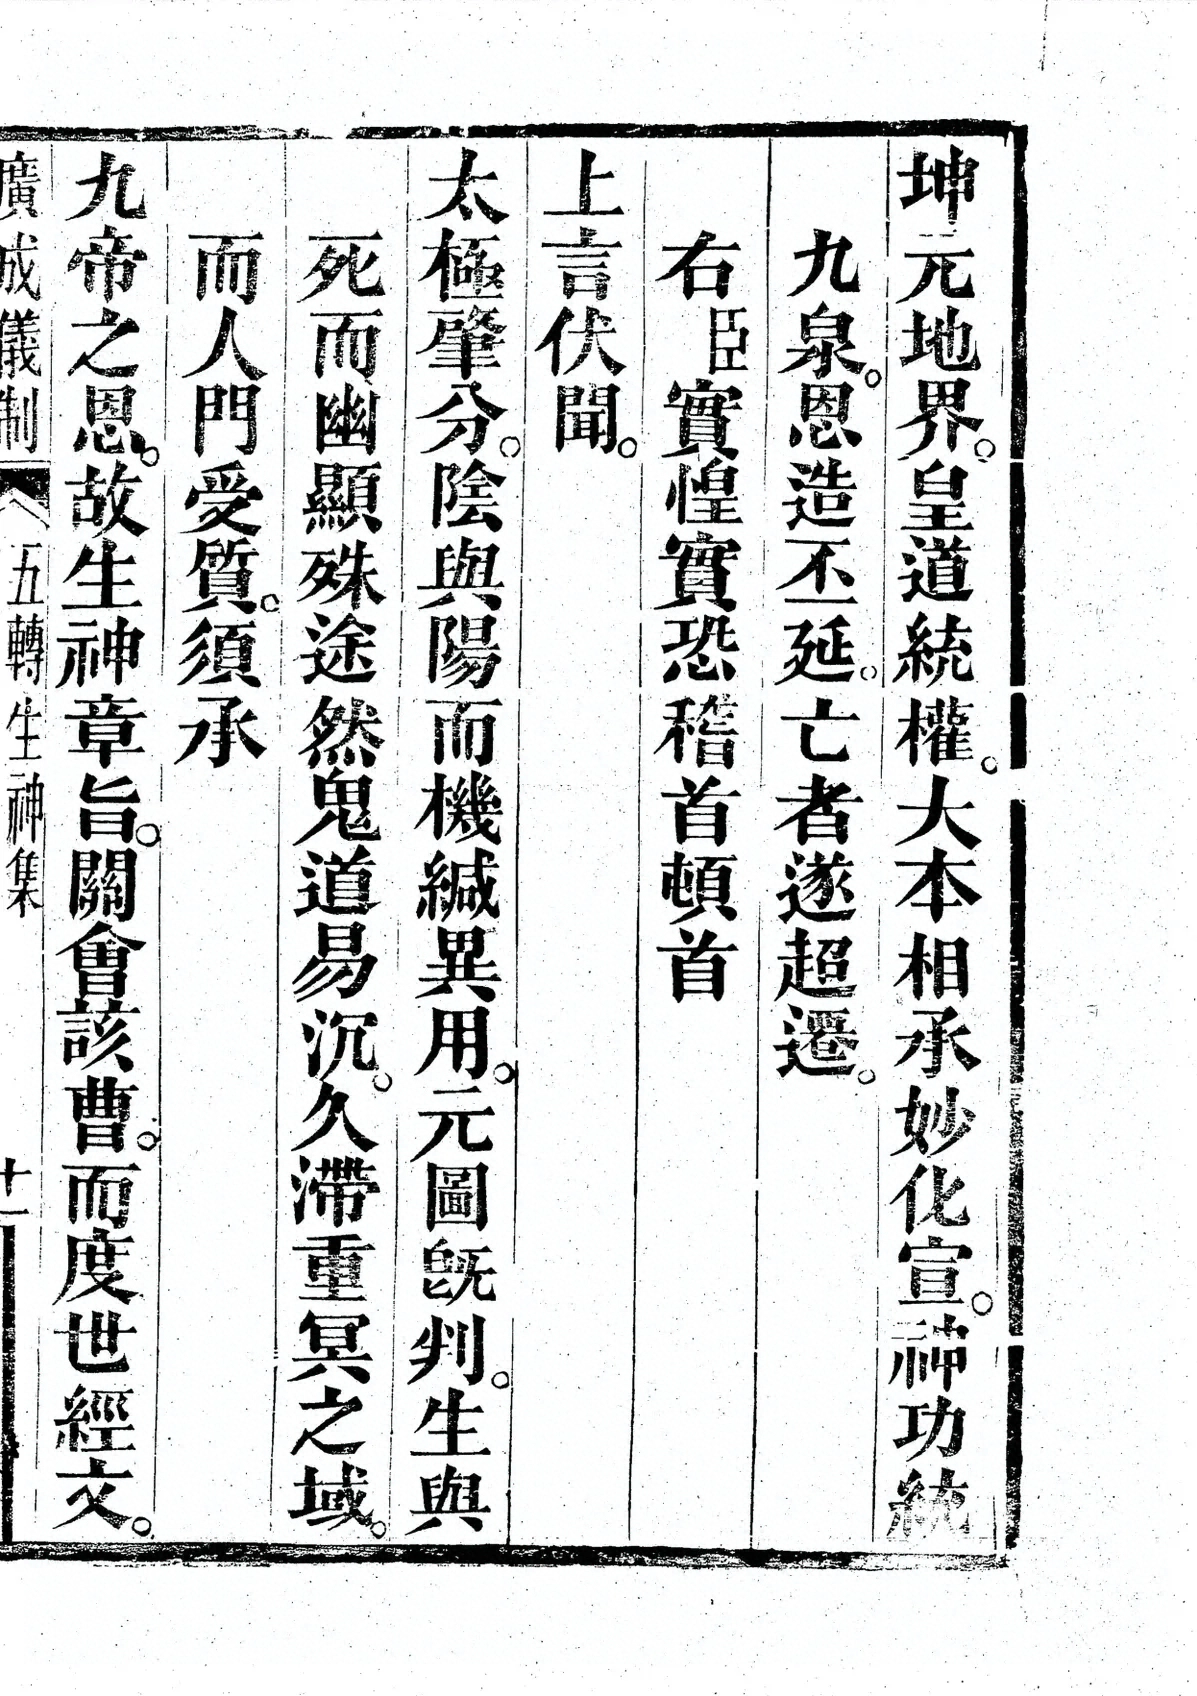 坤元地界。皇道統權。大本相承妙化宣。神功統
九泉。恩造丕延。亡者遂超遷。
右臣實惶實恐稽首頓首
上言伏聞。
太極肇分。陰與陽而機緘異用。元圖旣判。生與
死而幽顯殊途然鬼道易沉。久滯重冥之域。
而人門受質。須承
九帝之恩。故生神章旨。關會該曹。而度世經文。
廣成儀制 五轉生神集 十一